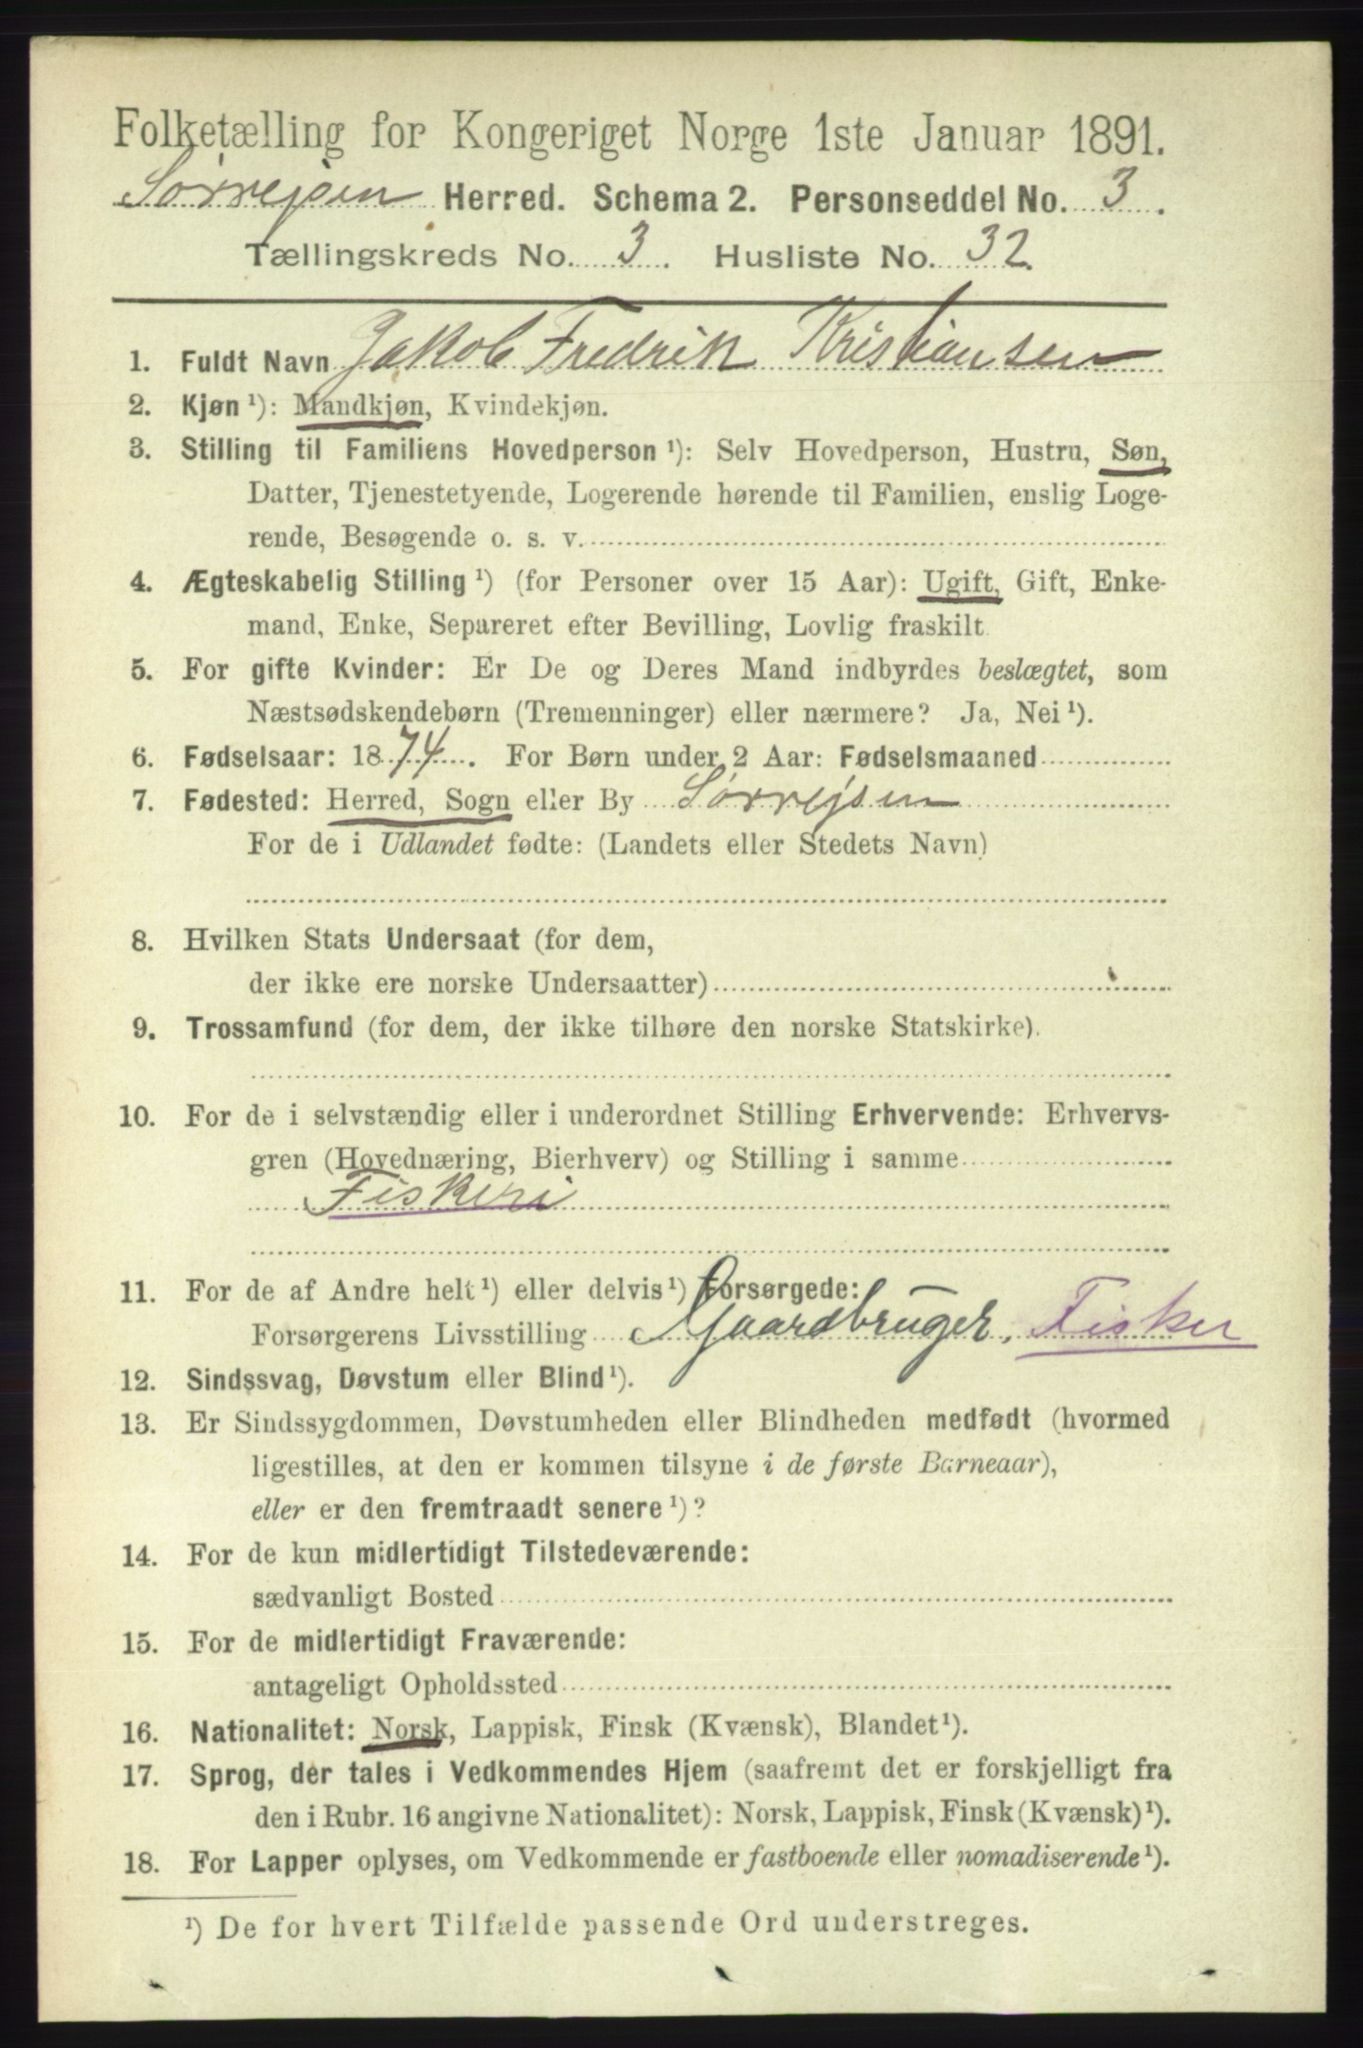 Folketælling for Kongeriget Norge 1ste Januar 1891.
Sørrejsen Herred. Schema 2. Personseddel No. 3.
Tællingskreds No. 3. Husliste No. 32.
1. Fuldt Navn Jakob Fredrik Kristiansen
2. Kjøn ¹): Mandkjøn, Kvindekjøn.
3. Stilling til Familiens Hovedperson ¹): Selv Hovedperson, Hustru, Søn,
Datter, Tjenestetyende, Logerende hørende til Familien, enslig Loge-
rende, Besøgende o. s. v.
4. Ægteskabelig Stilling ¹) (for Personer over 15 Aar): Ugift, Gift, Enke-
mand, Enke, Separeret efter Bevilling, Lovlig fraskilt
5. For gifte Kvinder: Er De og Deres Mand indbyrdes beslægtet, som
Næstsødskendebørn (Tremenninger) eller nærmere? Ja, Nei ¹).
6. Fødselsaar: 1874. For Børn under 2 Aar: Fødselsmaaned
7. Fødested: Herred, Sogn eller By Sørrejsen
For de i Udlandet fødte: (Landets eller Stedets Navn)
8. Hvilken Stats Undersaat (for dem,
der ikke ere norske Undersaatter)
9. Trossamfund (for dem, der ikke tilhøre den norske Statskirke).
10. For de i selvstændig eller i underordnet Stilling Erhvervende: Erhvervs-
gren (Hovednæring, Bierhverv) og Stilling i samme
Fiskeri
11. For de af Andre helt ¹) eller delvis ¹) Forsørgede:
Forsørgerens Livsstilling Gaardbruger, Fisker
12. Sindssvag, Døvstum eller Blind ¹).
13. Er Sindssygdommen, Døvstumheden eller Blindheden medfødt (hvormed
ligestilles, at den er kommen tilsyne i de første Barneaar),
eller er den fremtraadt senere ¹)?
14. For de kun midlertidigt Tilstedeværende:
sædvanligt Bosted
15. For de midlertidigt Fraværende:
antageligt Opholdssted
16. Nationalitet: Norsk, Lappisk, Finsk (Kvænsk), Blandet ¹).
17. Sprog, der tales i Vedkommendes Hjem (saafremt det er forskjelligt fra
den i Rubr. 16 angivne Nationalitet): Norsk, Lappisk, Finsk (Kvænsk) ¹).
18. For Lapper oplyses, om Vedkommende er fastboende eller nomadiserende ¹).
¹) De for hvert Tilfælde passende Ord understreges.